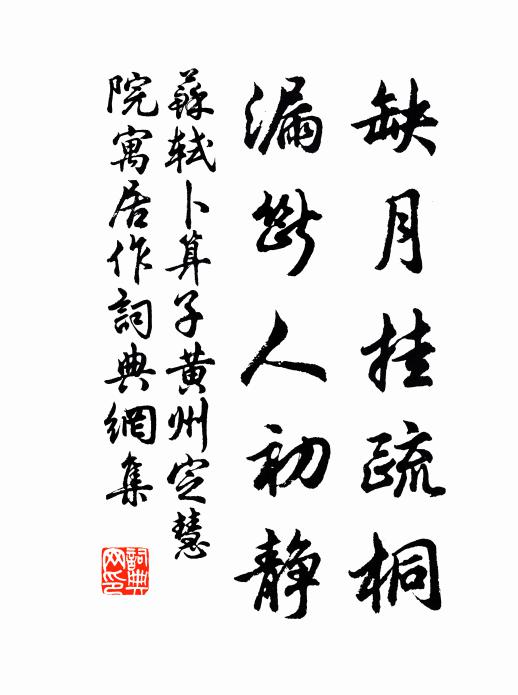 缺月挂疏桐
漏斷人初静
蘇軾卜算子黄州定慧
院寓居作詞典網集
詞典网印